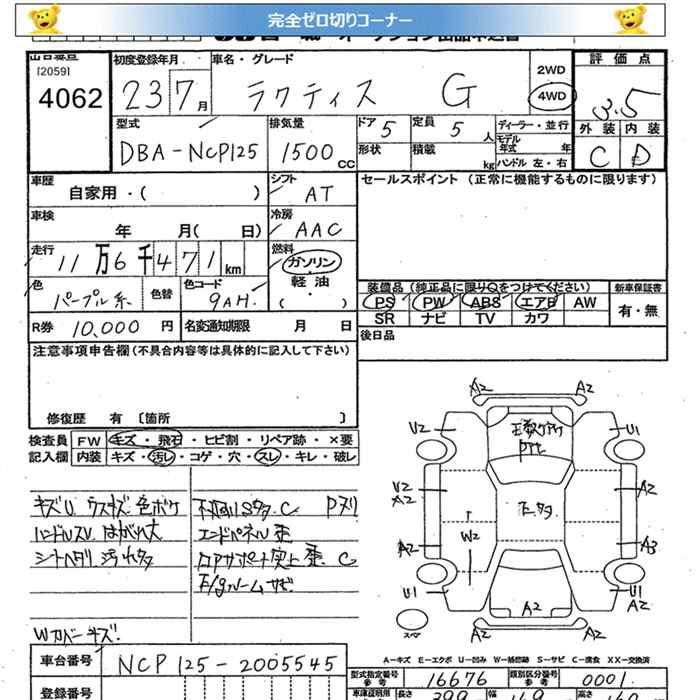 完全ゼロ切りコーナー
[2059]
4062
初度登録年月 23 7月
車名・グレード ラクティス G
2WD
4WD
評価点
3.5
外装 内装
C D
型式 DBA-NCP125
排気量 1500cc
ドア 5
形状
定員 5人
積載 kg
ディーラー・並行
モデル年式 年
ハンドル 左・右
車歴 自家用・( )
シフト AT
セールスポイント (正常に機能するものに限ります)
車検 年 月( 日)
冷房 AAC
走行 11万6千471km
燃料 ガソリン
軽油
・( )
色 パープル系
色替
色コード 9AH
装備品(純正品に限り○をつけてください)
PS PW ABS エアB AW
SR ナビ TV カワ
新車保証書
有・無
R券 10,000円
名変通知期限 月 日
後日品
注意事項申告欄(不具合内容等は具体的に記入して下さい)
修復歴 有 [箇所 ]
検査員記入欄
FW キズ・飛石・ヒビ割・リペア跡・×要
内装 キズ・汚レ・コゲ・穴・スレ・キレ・破レ
キズU ウスキズ 色ボケ
ハンドルスレ はがれ大
シートヘタリ 汚れ多
エンドパネル歪
Wカバーキズ!
A2 A2
U2 U1
U2 A2
A2
A2 A3
W2
U1 U1
A2 A2
A2 A2
スペア
A-キズ E-エクボ U-凹み W-補修跡 S-サビ C-腐食 XX-交換済
車台番号 NCP125-2005545
登録番号
型式指定番号 参考 16676
類別区分番号 参考 0001
長さ 399 幅 169 高さ 160